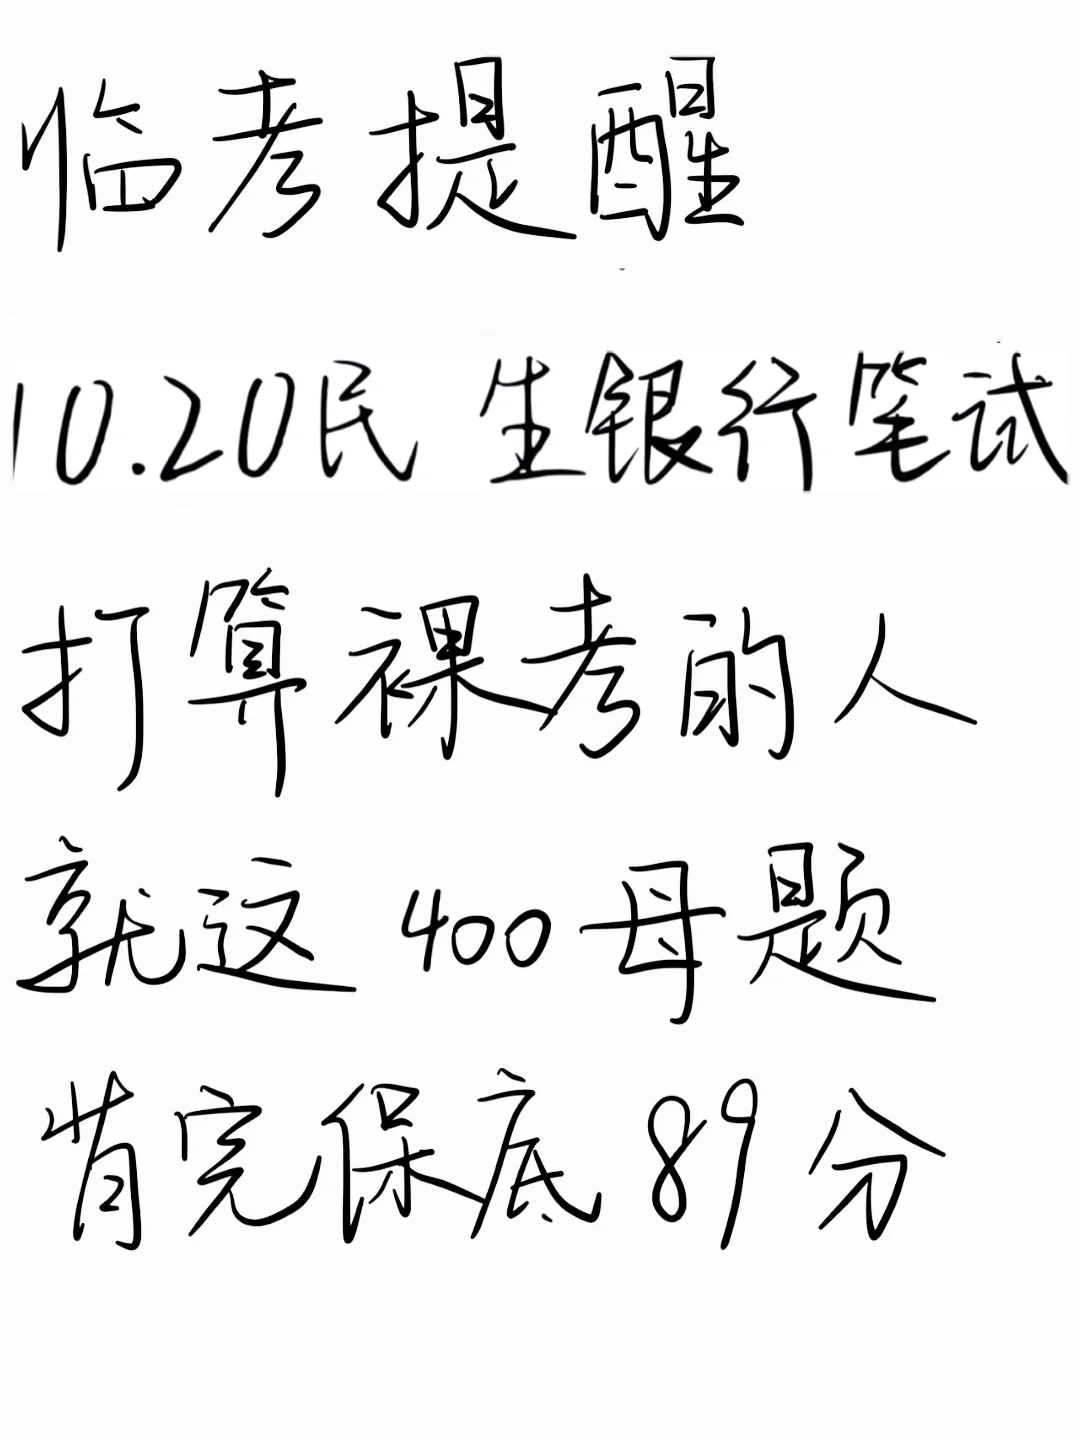 临考提醒
10.20民生银行笔试
打算裸考的人
就这400母题
背完保底89分